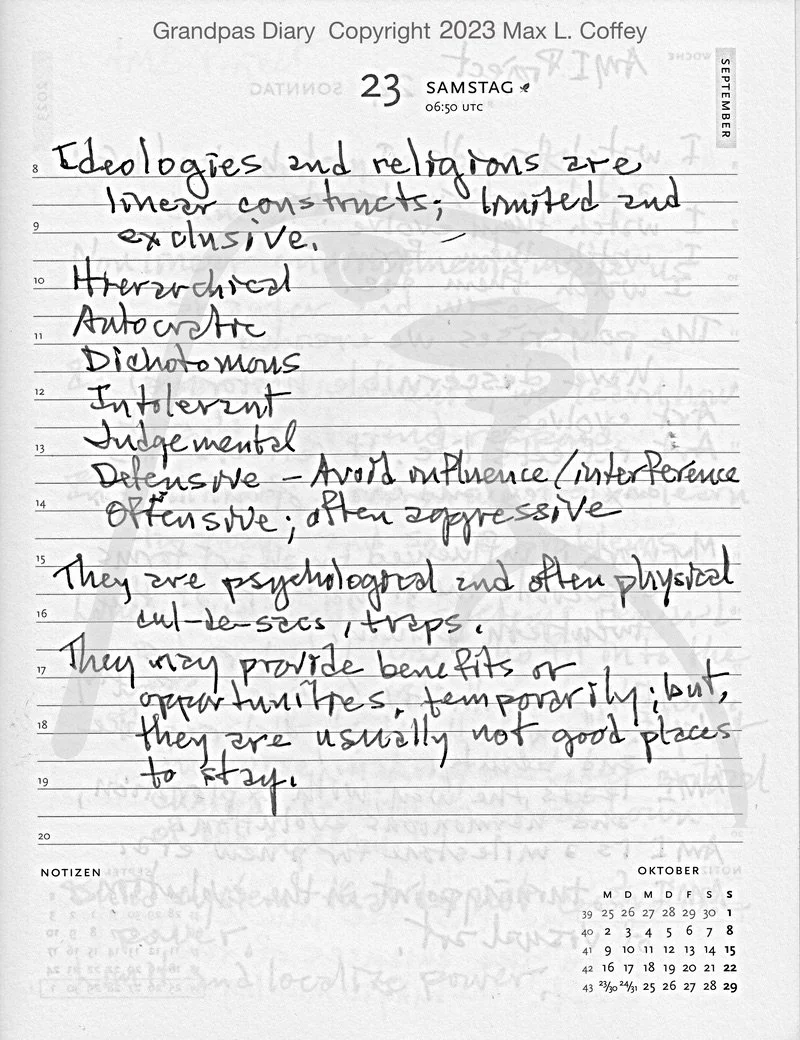 Grandpas Diary Copyright 2023 Max L. Coffey
SEPTEMBER
23 SAMSTAG
06:50 UTC
8 Ideologies and religions are
linear constructs; limited and
9 exclusive.
10 Hierarchical
11 Autocratic
Dichotomous
12 Intolerant
13 Judgemental
Defensive – Avoid influence/interference
14 Offensive; often aggressive
15 They are psychological and often physical
16 cul-de-sacs, traps.
17 They may provide benefits or
opportunities, temporarily; but,
18 they are usually not good places
19 to stay.
20
NOTIZEN
OKTOBER
M D M D F S S
39 25 26 27 28 29 30 1
40 2 3 4 5 6 7 8
41 9 10 11 12 13 14 15
42 16 17 18 19 20 21 22
43 23/30 24/31 25 26 27 28 29